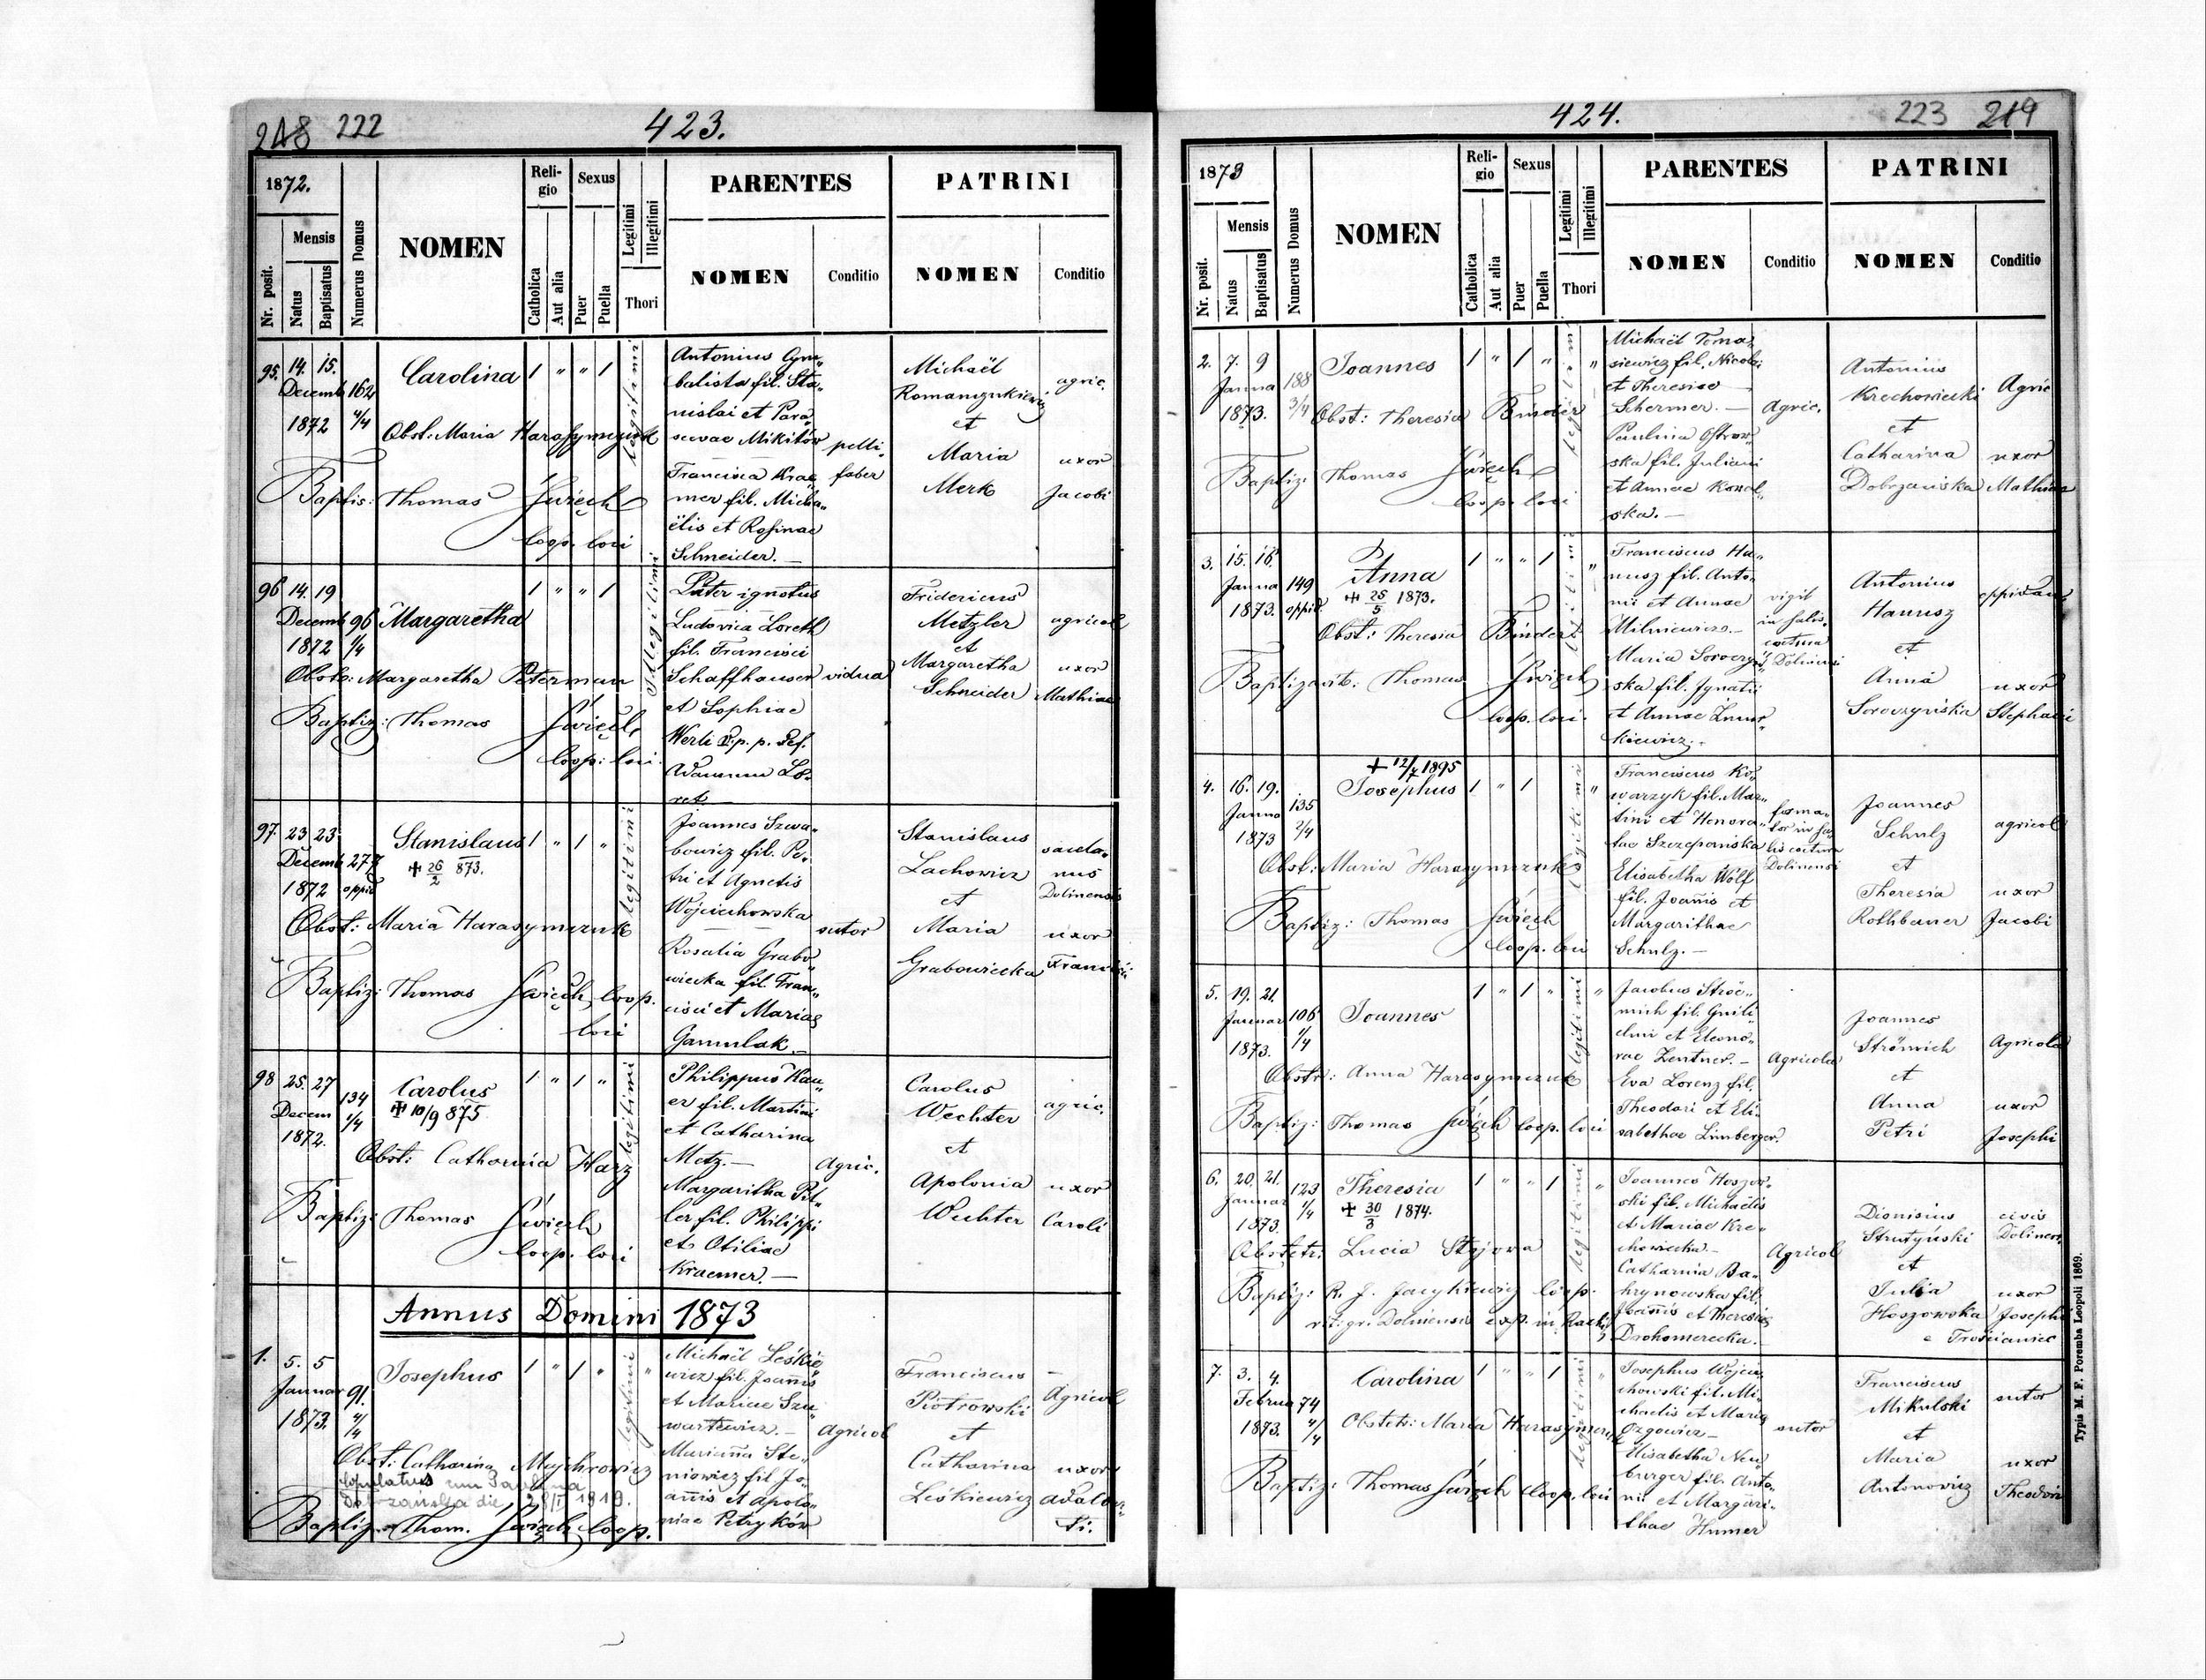 218 222
423.
1872.
Nr. posit.
Mensis
Natus
Baptisatus
Numerus Domus
NOMEN
Religio
Catholica
Aut alia
Sexus
Puer
Puella
Legitimi
Illegitimi
Thori
PARENTES
NOMEN
Conditio
PATRINI
NOMEN
Conditio
95. 14. 15.
Decemb 162
1872 4/4
Carolina 1 " " 1
legitimi
Obst: Maria Harasymczuk
Baptis: Thomas Święch
Coop. loci
Antonius Cym„
balista fil. Sta„
nislai et Para„
scevae Mikitów
Francisca Krae„
mer fil. Micha„
ëlis et Rosinae
Schneider. —
pelli„
faber
Michaël
Romanczukiewicz
et
Maria
Merk
agric.
uxor
Jacobi
96 14. 19
Decemb 96
1872 1/4
Margaretha
1 " " 1
Illegitimi
Obst: Margaretha Peterman
Baptiz: Thomas Święch
Coop: loci.
Pater ignotus
Ludovica Loreth
fil. Francisci
Schaffhauser
et Sophiae
Werli
Adamum Lo„
ret
vidua
Fridericus
Metzler
et
Margaretha
Schneider
agricol
uxor
Mathiae
97. 23 23
Decemb 277
1872 oppid
Stanislaus 1 " 1 "
✝ 26/2 873.
legitimi
Obst: Maria Harasymczuk
Baptiz: Thomas Święch Coop.
loci
Joannes Szwa„
bowicz fil. Pe„
tri et Agnetis
Wojciechowska
Rosalia Grabo„
wiecka fil. Fran„
cisci et Mariae
Gamulak. —
sutor
Stanislaus
Lachowicz
et
Maria
Grabowiecka
Dolinensis
uxor
Francisci
98 25. 27
Decem 134
1872. 1/4
Carolus 1 " 1 "
✝ 10/9 875
legitimi
Obst: Catharina Harz
Baptiz: Thomas Święch
Coop. loci
Philippus Kau„
er fil. Martini
et Catharina
Metz. —
Margaritha Pit„
ler fil. Philippi
et Otiliae
Kraemer. —
Agric.
Carolus
Wechter
et
Apolonia
Wechter
agric.
uxor
Caroli
Annus Domini 1873
1. 5. 5
Januar 91.
1873. 4/4
Josephus 1 " 1 " "
legitimi
Obst: Catharina Mychrowicz
Copulatus cum Paulina
Dobrzańska die 28/II 1919.
Baptiz. Thom. Święch Coop.
Michaël Leśkie„
wicz fil. Joannis
et Mariae Szu„
wartewicz. —
Marianna Ste„
niowicz fil Jo„
annis et Apolo„
niae Petryków
Agricol
Franciscus
Piotrowski
et
Catharina
Leśkiewicz
Agricol
uxor
Adalber„
ti.
424.
223 219
1873
Nr. posit.
Mensis
Natus
Baptisatus
Numerus Domus
NOMEN
Religio
Catholica
Aut alia
Sexus
Puer
Puella
Legitimi
Illegitimi
Thori
PARENTES
NOMEN
Conditio
PATRINI
NOMEN
Conditio
2. 7. 9
Janua 188
1873. 3/4
Joannes 1 " 1 " "
legitimi
Obst: Theresia Binder
Baptiz: Thomas Święch
Coop. loci
Michaël Toma„
siewicz fil. Nicolai
et Theresiae
Schermer. —
Paulina Ostrow„
ska fil. Juliani
et Annae Kowal„
ska. —
Agric.
Antonius
Krechowiecki
et
Catharina
Dobrzańska
Agric
uxor
Mathiae
3. 15. 16.
Janua 149
1873. oppid.
Anna 1 " " 1 "
✝ 25/5 1873.
legitimi
Obst: Theresia Binder
Baptizavit: Thomas Święch
Coop. loci.
Franciscus Ha„
nusz fil. Anto„
nii et Annae
Milniewicz. —
Maria Soroczyń„
ska fil. Ignatii
et Annae Zmur„
kiewicz. —
vigil
in salis
coctura
Dolinensi
Antonius
Hanusz
et
Anna
Soroczyńska
oppidanus
uxor
Stephani
4. 16. 19.
Janua 135
1873 2/4
+ 12/7 1895
Josephus 1 " 1 "
legitimi
Obst: Maria Harasymczuk
Baptiz: Thomas Święch
Coop. loci
Franciscus Ko„
warzyk fil. Mar„
tini et Honora„
tae Szczepańska
Elisabetha Wolf
fil. Joannis et
Margarithae
Schulz. —
forma„
tor in sa„
lis coctura
Dolinensi
Joannes
Schulz
et
Theresia
Rothbauer
agricol
uxor
Jacobi
5. 19. 21.
Januar 106
1873. 1/4
Joannes 1 " 1 " "
legitimi
Obstr: Anna Harasymczuk
Baptiz: Thomas Święch Coop. loci
Jacobus Strö„
mich fil. Guili„
elmi et Eleono„
rae Zentner. —
Eva Lorenz fil.
Theodori et Eli„
sabethae Linnberger.
Agricola
Joannes
Strömich
et
Anna
Petri
Agricola
uxor
Josephi
6. 20. 21.
Januar 123
1873. 1/4
Theresia 1 " " 1 "
✝ 30/3 1874.
legitimi
Obstetr: Lucia Styjova
Baptiz: R. J. Jacykiewicz Coop.
r. gr. Dolinensis exp. in Rachiń
Joannes Hoszow„
ski fil. Michaëlis
et Mariae Kre„
chowiecka. —
Catharina Ba„
hrynowska fil.
Joannis et Theresiae
Drohomerecka. —
Agricol
Dionisius
Strutyński
et
Julia
Hoszowska
civis
Dolinens.
uxor
Josephi
e Trościaniec
7. 3. 4.
Februa 74
1873. 4/4
Carolina 1 " " 1 "
legitimi
Obstetr: Maria Harasymczuk
Baptiz: Thomas Święch Coop. loci
Josephus Wojcie„
chowski fil. Mi„
chaelis et Maria
Ozgowicz —
Elisabetha Neu„
burger fil. Anto„
nii et Margari„
thae Humer
sutor
Franciscus
Mikulski
et
Maria
Antonowicz
sutor
uxor
Theodori
Typis M. F. Poremba Leopoli 1869.